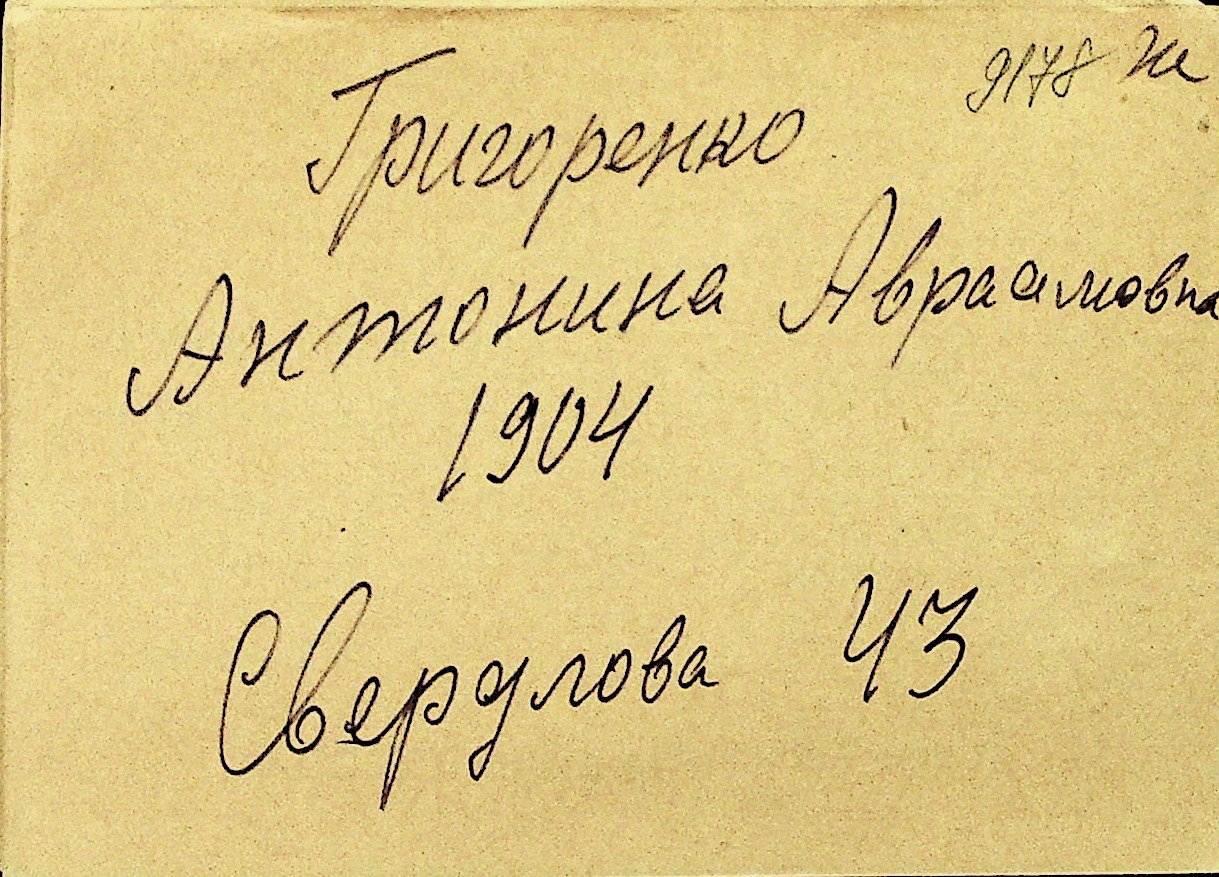 9178 Ж
Григоренко
Антонина Авраамовна
1904
Свердлова 43